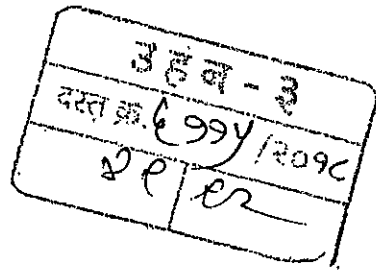 उहन - ३
दस्त क्र. ६११५/२०१८
४९ ९२